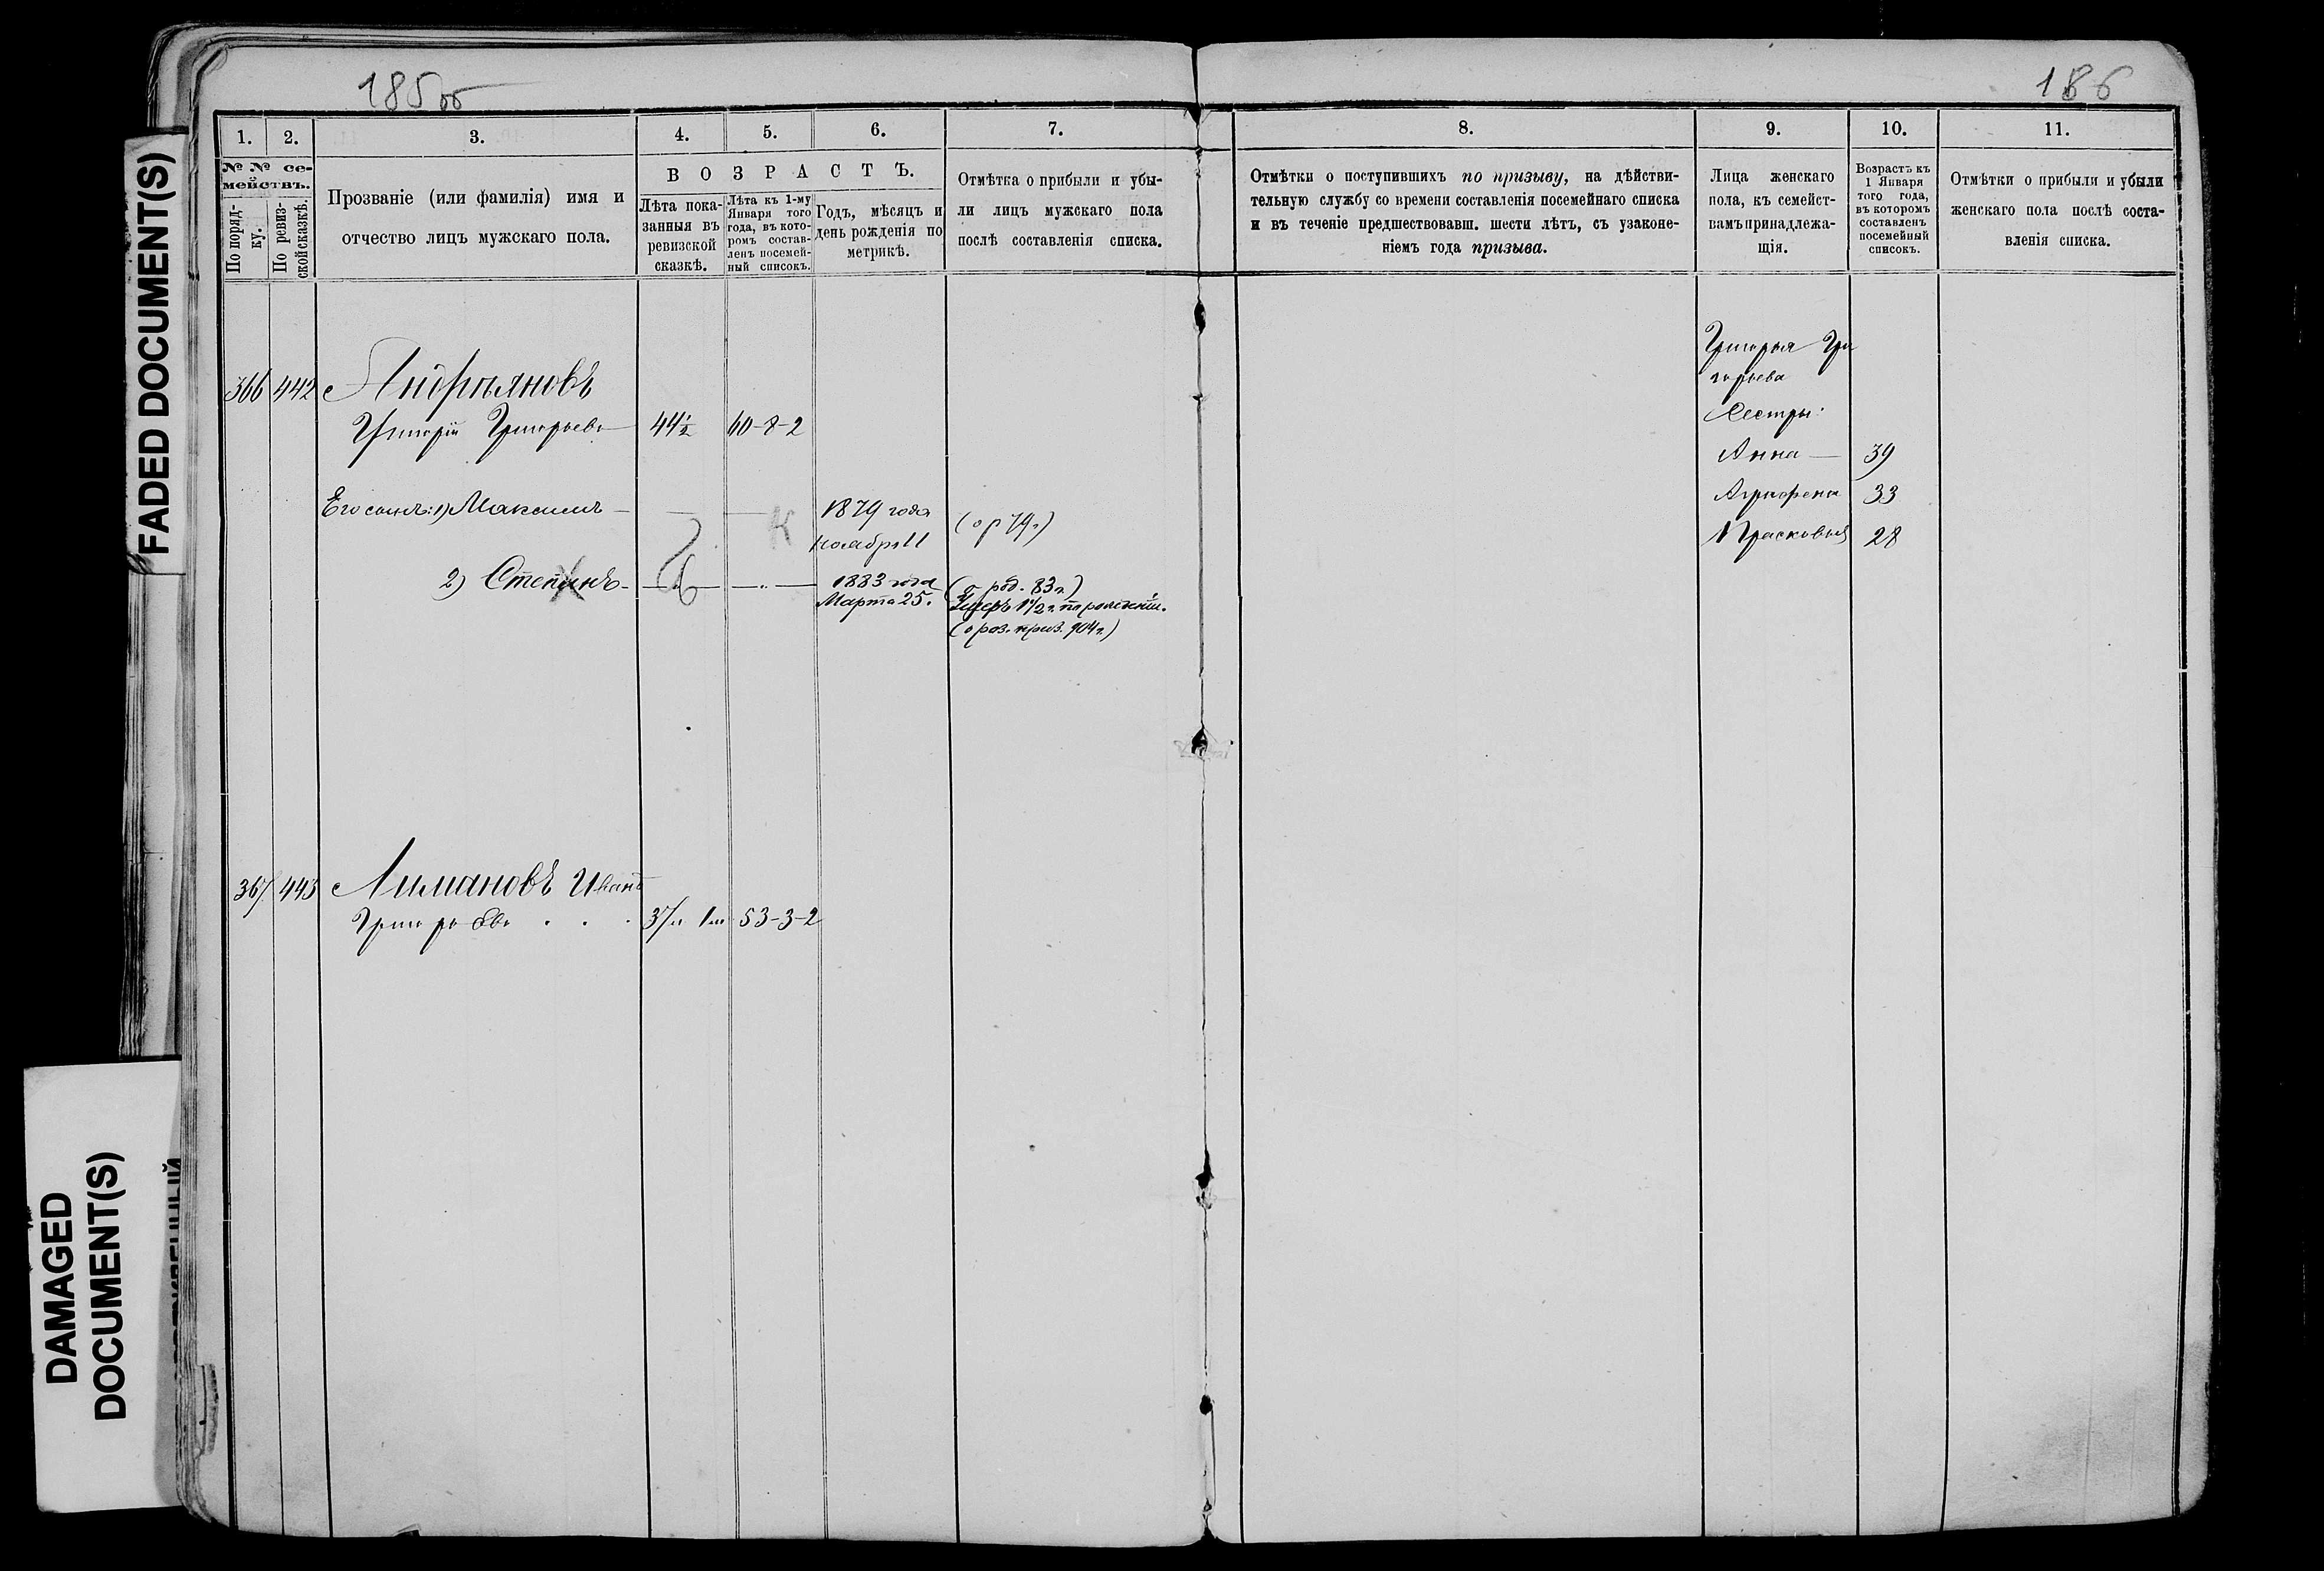 185об
186
1.
2.
3.
4.
5.
6.
7.
8.
9.
10.
11.
№ № се-
мействъ.
По поряд-
ку.
По ревиз-
ской сказкѣ.
Прозваніе (или фамилія) имя и
отчество лицъ мужскаго пола.
ВОЗРАСТЪ.
Лѣта пока-
занныя въ
ревизской
сказкѣ.
Лѣта къ 1-му
Января того
года, въ кото-
ромъ состав-
ленъ посемей-
ный списокъ.
Годъ, мѣсяцъ и
день рожденія по
метрикѣ.
Отмѣтка о прибыли и убы-
ли лицъ мужскаго пола
послѣ составленія списка.
Отмѣтки о поступившихъ по призыву, на дѣйстви-
тельную службу со времени составленія посемейнаго списка
и въ теченіе предшествовавш. шести лѣтъ, съ узаконе-
ніемъ года призыва.
Лица женскаго
пола, къ семейст-
вамъ принадлежа-
щія.
Возрастъ къ
1 Января
того года,
въ которомъ
составленъ
посемейный
списокъ.
Отмѣтки о прибыли и убыли
женскаго пола послѣ соста-
вленія списка.
366 442 Андрияновъ
Григорій Григорьевъ 44½ 40-8-2
Его сынъ: 1) Максимъ — 1879 года
Ноября 11
К
2) Степанъ — 1883 года
Марта 25.
(род. 83г.)
по рожденiи.
904г.)
Григорья Гри
горьева
Сестры:
Анна — 39
Агрифена 33
Прасковья 28
367 443 Лимановъ Иванъ
Григорьевъ . . . 37 53-3-2
FADED DOCUMENT(S)
DAMAGED
DOCUMENT(S)